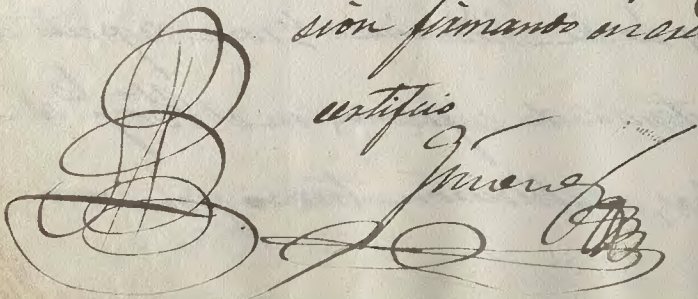 sión firmando
certifico
Jimenez